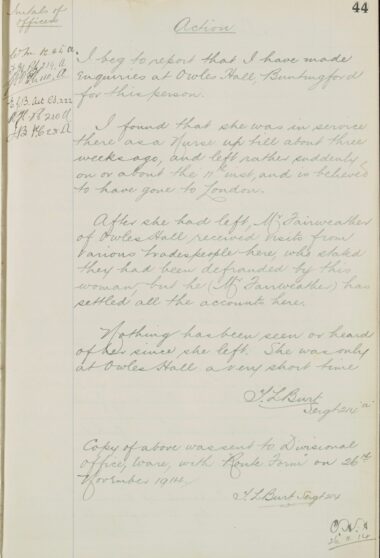 44
Initials of
officers
Action
I beg to report that I have made
Enquiries at Owles Hall, Buntingford
for this person.
I found that she was in service
there as a Nurse up till about three
weeks ago, and left rather suddenly
on or about the 11th inst, and is believed
to have gone to London.
After she had left, Mr Fairweather
of Owles Hall received visits from
various tradespeople here, who stated
they had been defrauded by this
woman, but he (Mr Fairweather) has
settled all the accounts here.
Nothing has been seen or heard
of her since she left. She was only
at Owles Hall a very short time
T. L. Burt
Sergt
Copy of above was sent to Divisional
Office, Ware, with "Route Form" on 26th
November 1914.
T. L. Burt Sergt